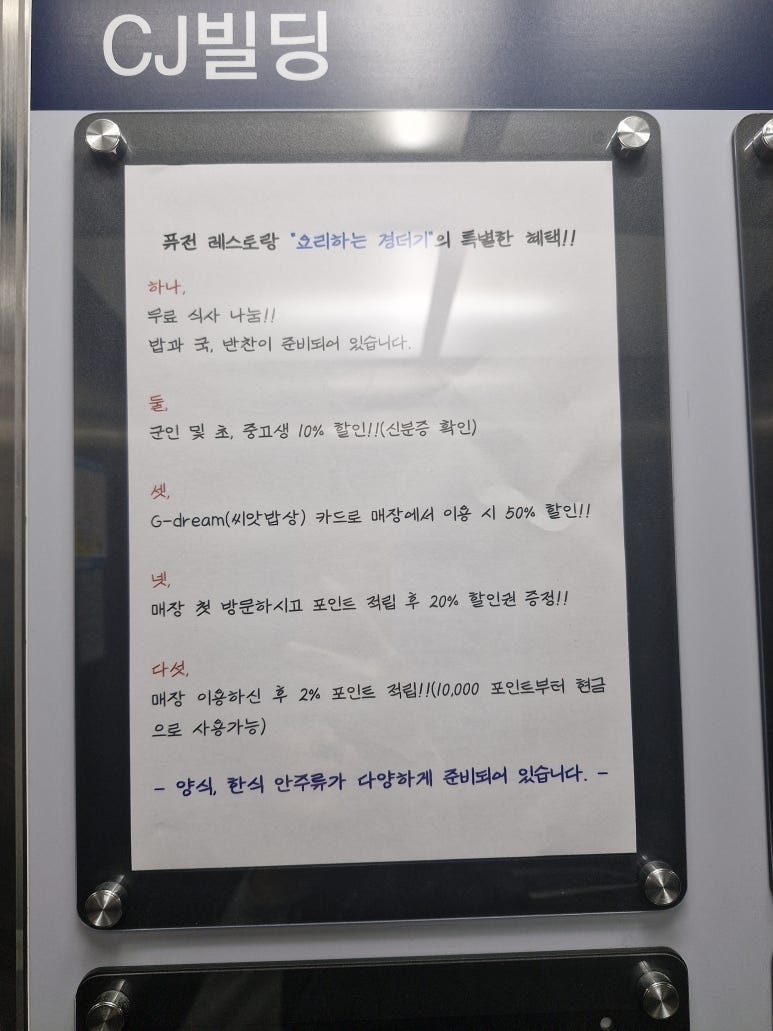 CJ빌딩
퓨전 레스토랑 "요리하는 경더기"의 특별한 혜택!!
하나,
무료 식사 나눔!!
밥과 국, 반찬이 준비되어 있습니다.
둘,
군인 및 초, 중고생 10% 할인!!(신분증 확인)
셋,
G-dream(씨앗밥상) 카드로 매장에서 이용 시 50% 할인!!
넷,
매장 첫 방문하시고 포인트 적립 후 20% 할인권 증정!!
다섯,
매장 이용하신 후 2% 포인트 적립!!(10,000 포인트부터 현금
으로 사용가능)
- 양식, 한식 안주류가 다양하게 준비되어 있습니다. -